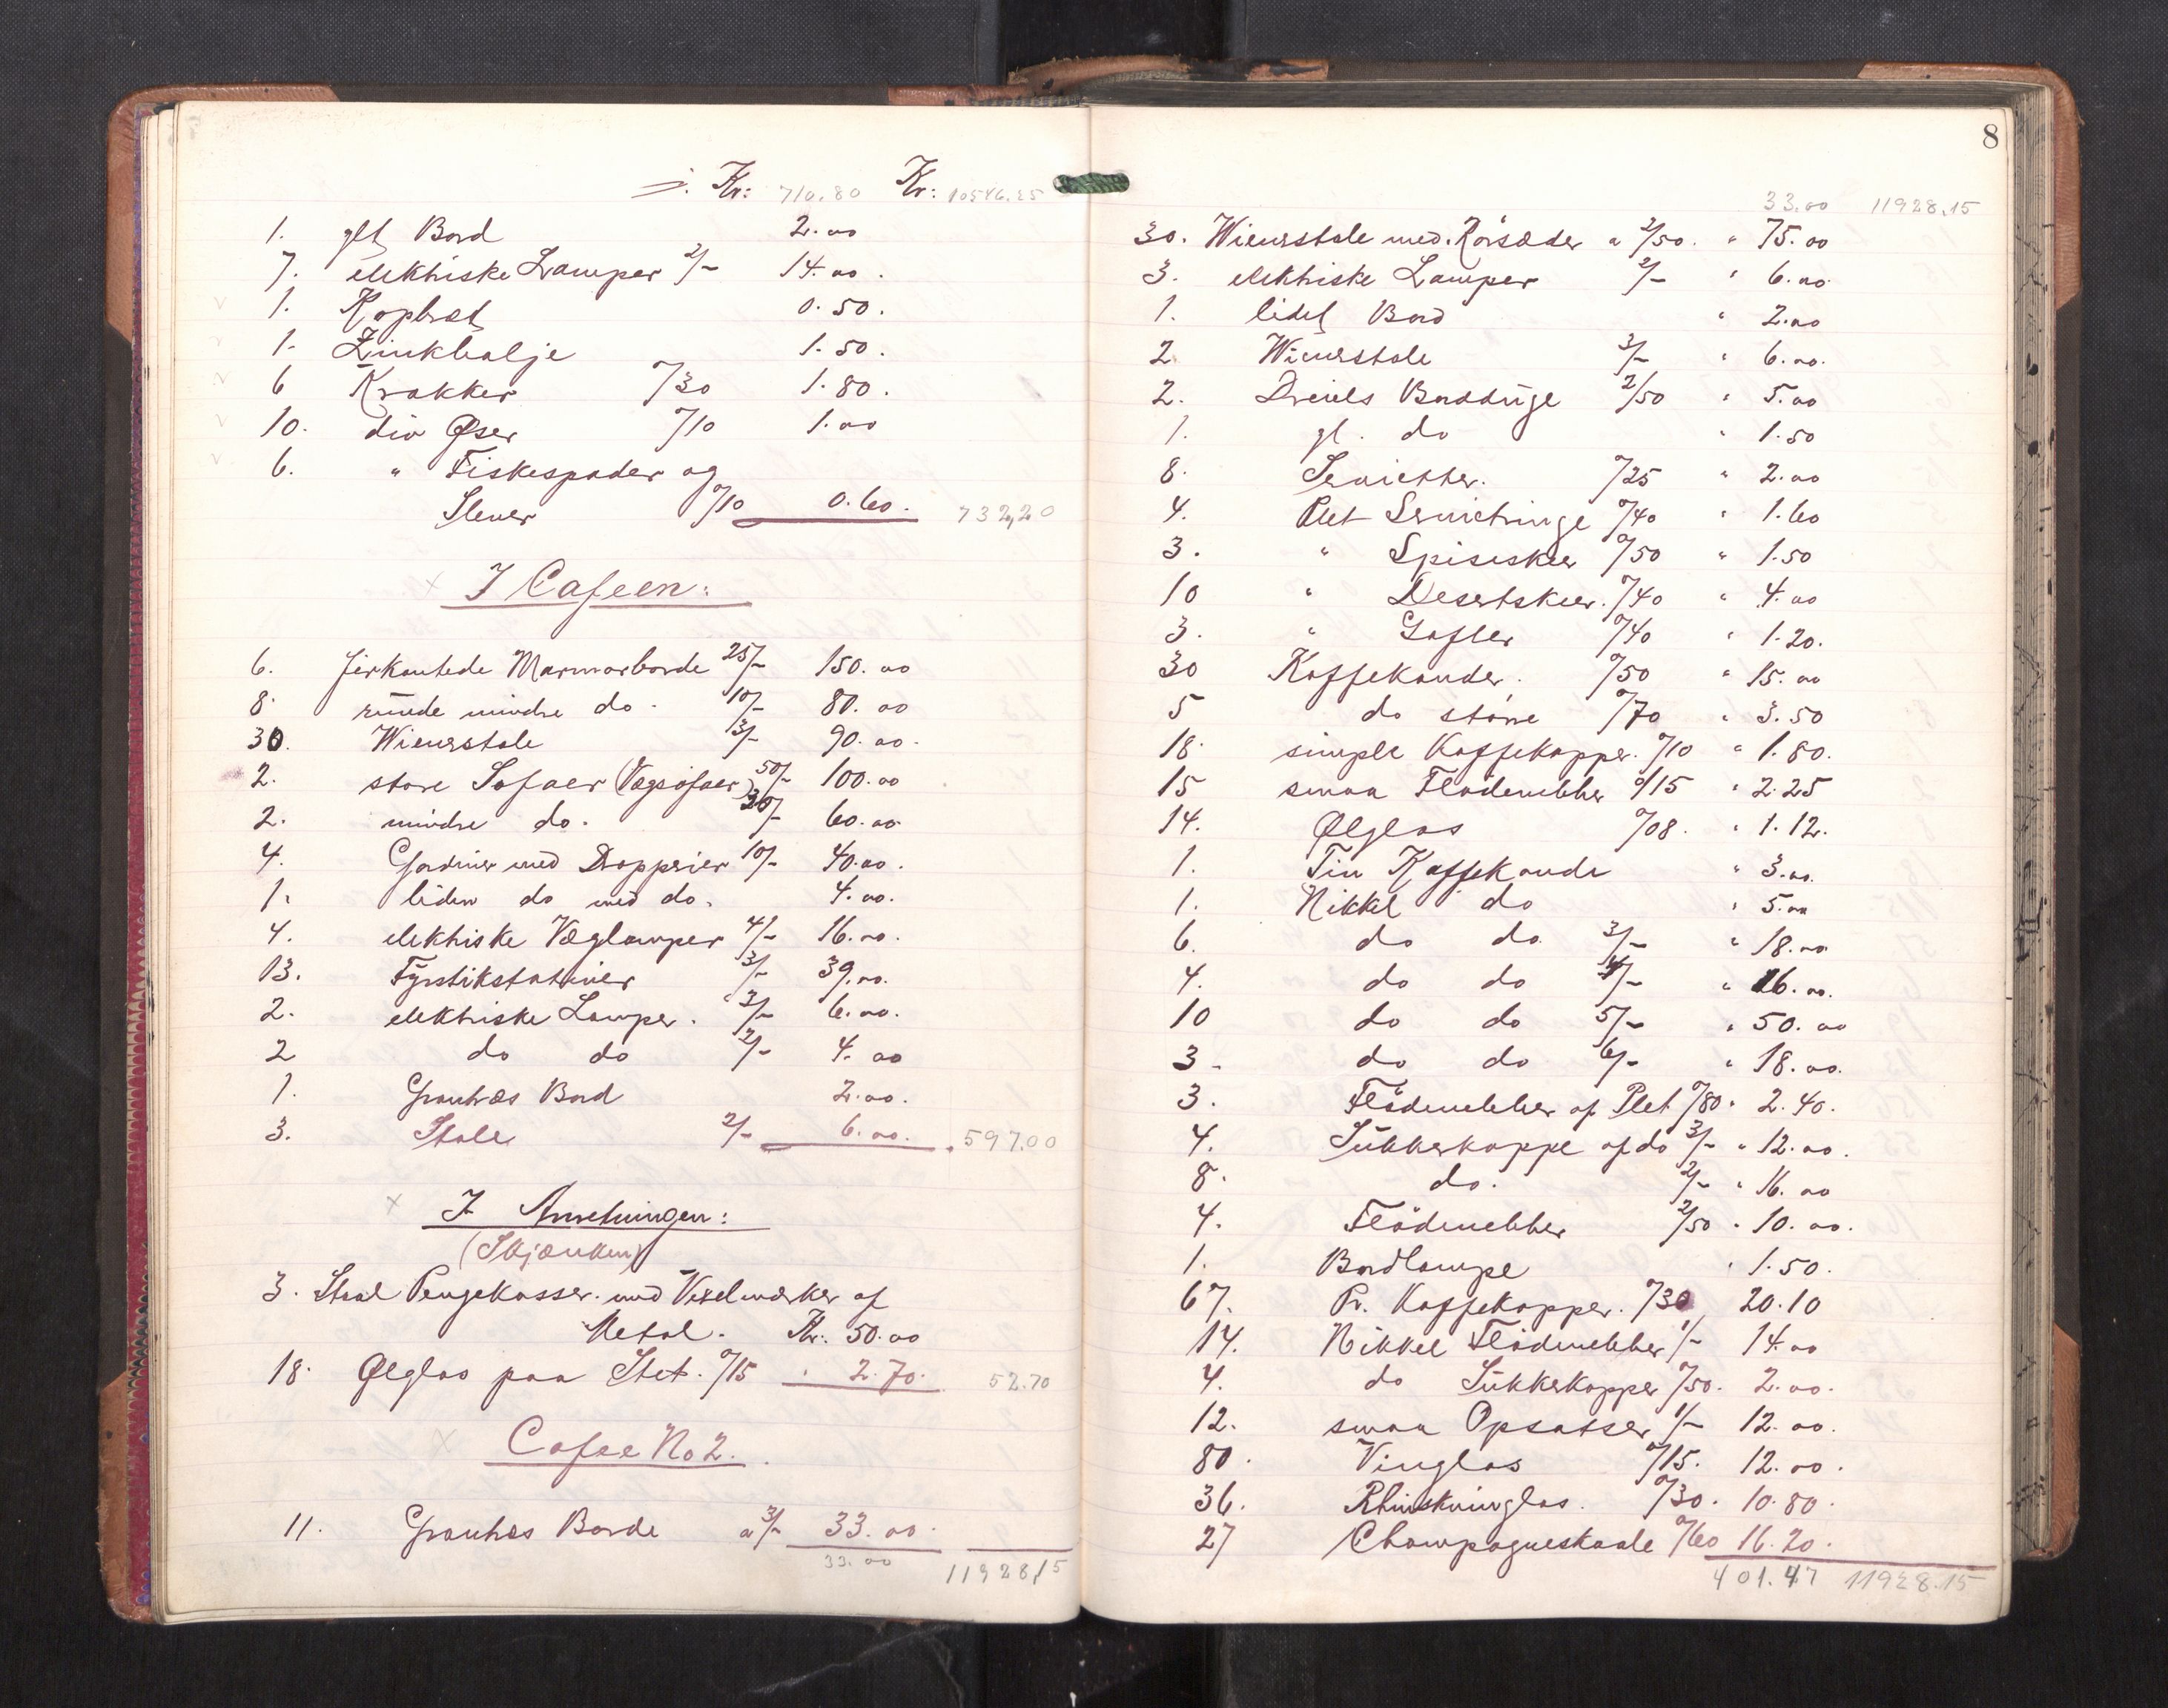 Kr: 710.80 Kr: 10546.25
1. glt Bord 2.00
7. elektriske Lamper 2/- 14.00.
1. Kopbræt 0.50.
1. Zinkbalje 1.50.
6 Krakker 0/30 1.80.
10. div Øser 0/10 1.00
6. " Fiskespader og
Slever 0/10 0.60. 732,20
I Cafeen:
6. firkantede Marmorborde 25/- 150.00
8. runde mindre do. 10/- 80.00
30. Wienerstole 3/- 90.00.
2. store Sofaer (Vægsofaer) 50/- 100.00
2. mindre do. 30/- 60.00
4. Gardiner med Drapperier 10/- 40.00.
1. liden do med do. 4.00.
4. elektriske Væglamper 4/- 16.00.
13. Fyrstikstativer 3/- 39.00.
2. elektriske Lamper. 3/- 6.00.
2 do do 2/- 4.00
1. Grantræs Bord 2.00.
3. Stole 2/- 6.00. 597.00
I Anretningen:
(Skjænken)
3. Staal Pengekasser med Vexelmærker af
Metal. Kr. 50.00
18. Ølglas paa Stet. 0/15 2.70. 52.70
Cafee No 2.
11. Grantræs Borde a 3/- 33.00.
33.00 11928,15
8
33.00 11928.15
30. Wienerstole med Rörsæder a 2/50. " 75.00
3. elektriske Lamper 2/- " 6.00.
1. lidet Bord " 2.00
2 Wienerstole 3/- " 6.00.
2. Dreiels Borddüge 2/50 " 5.00
1. gl. do " 1.50
8. Servietter. 0/25 " 2.00
4. Plet Servietringe 0/40 " 1.60
3. " Spiseskeer 0/50 " 1.50
10 " Desertskeer. 0/40 " 4.00
3. " Gafler 0/40 " 1.20.
30 Kaffekander. 0/50 " 15.00
5 do större 0/70 " 3.50
18. simple Kaffekopper. 0/10 " 1.80.
15 smaa Flödenebber 0/15 " 2.25
14. Ølglas 0/08. " 1.12.
1. Tin Kaffekande " 3.00.
1. Nikkel do " 5.00
6. do do 3/- " 18.00
4. do do 4/- " 16.00.
10 do do 5/- " 50.00
3. do do 6/- " 18.00.
3. Flödenebber af Plet 0/80 " 2.40.
4. Sükkerkoppe af do 3/- " 12.00.
8. do. 2/- " 16.00
4. Flödenebber 2/50 " 10.00.
1. Bordlampe " 1.50.
67. Pr. Kaffekopper. 0/30 20.10
14. Nikkel Flödenebber 1/- 14.00
4. do Sükkerkopper 0/50. 2.00.
12. smaa Opsatser 1/- 12.00.
80. Vinglas 0/15. 12.00.
36. Rhinskvinglas. 0/30. 10.80.
27 Champagneskaale 0/60 16.20.
401.47 11928.15